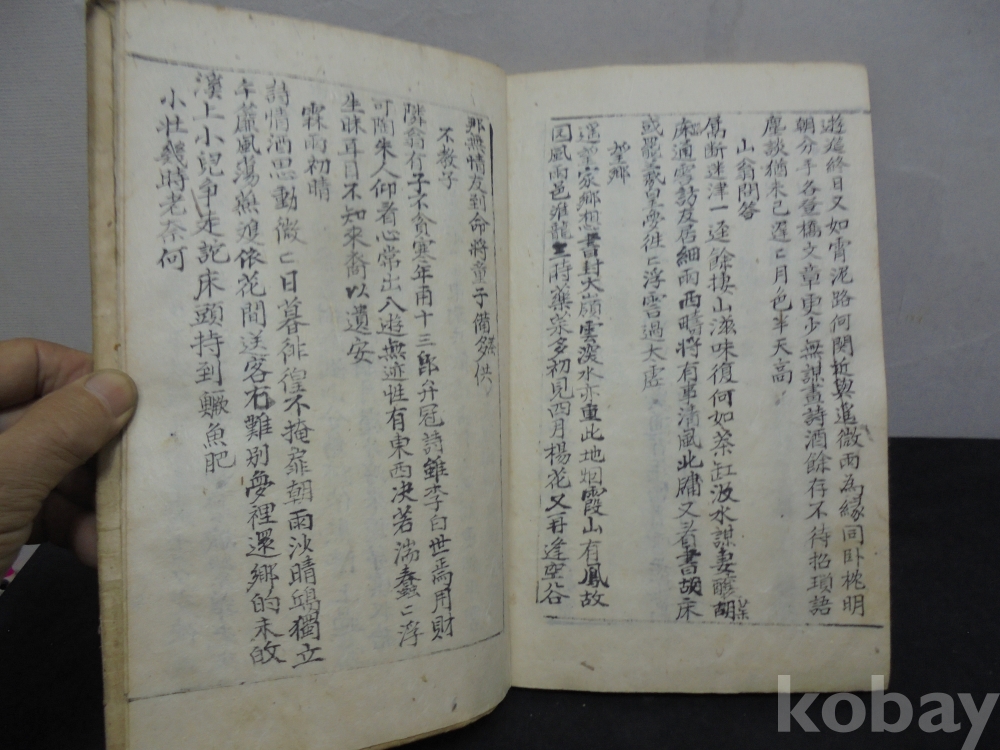 遊遑終日又如霄泥路何関近與追微雨為緣同卧枕明
朝分手各登橋文章更少無謀畫詩酒餘存不待招瑣語
塵談猶未已遲〻月色半天高
山翁問答
雋斷迷津一逕餘捿山滋味復何如茶缸汲水謀妻釀胡
床通雪訪友居細雨西疇將有事清風北牖又看書胡床
或罷飛皇夢徃〻浮雲過大虛
望鄉
遙望家鄉想書封大嶺雲深水亦重此地烟霞山有鳳故
園風雨邑准龍三時藥菜多初見四月楊花又再逢空谷
那無情友到命將童子備飱供
不教子
隣翁有子不貪寒年甫十三郎弁冠詩雖李白世焉用財
可陶朱人仰看心常出入遊無迹性有東西决若湍蠢〻浮
生昧耳目不知來裔以遺安
霖雨初晴
詩情酒思動微〻日暮徘徨不掩扉朝雨沙晴鴟獨立
午蘆風蕩燕雙依花間送客有難別夢裡還鄉的未的
溪上小兒爭走訖床頭持到鱖魚肥
小壯幾時老奈何
kobay